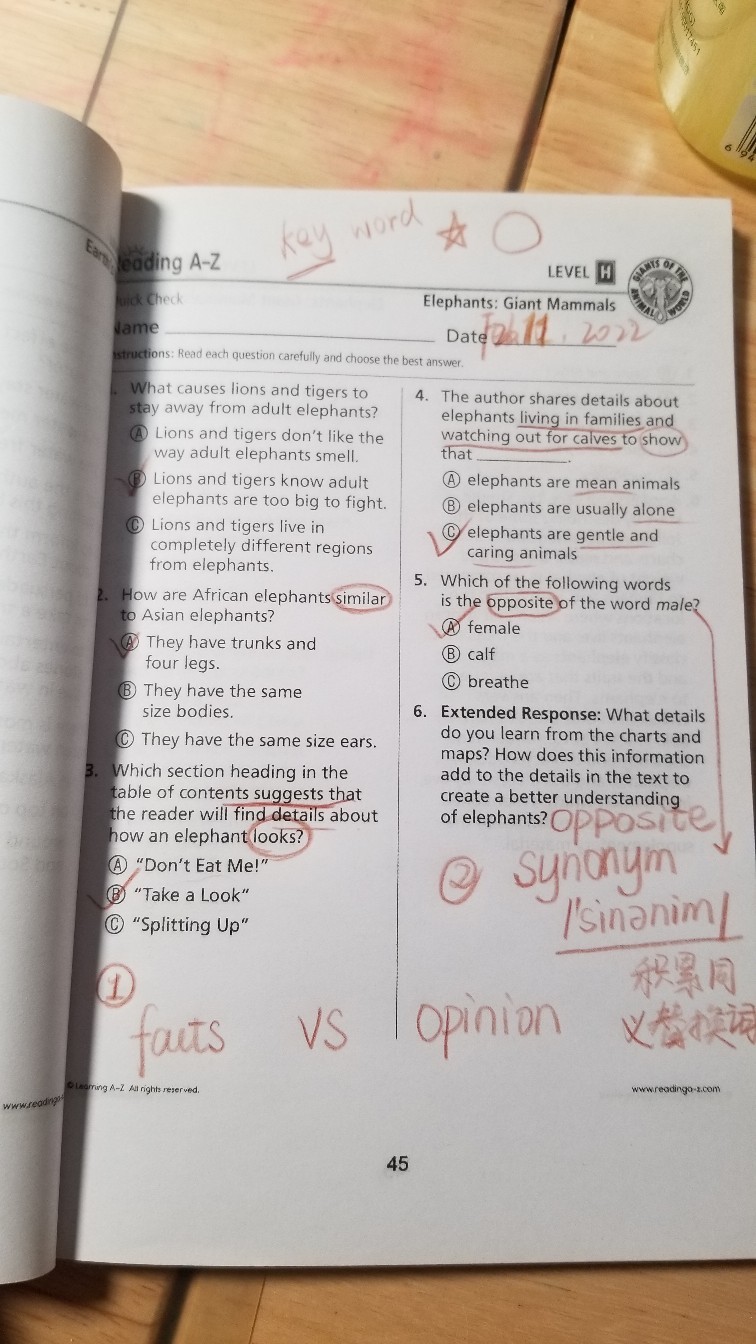 key word
Reading A-Z
LEVEL H
GIANTS OF THE ANIMAL WORLD
Quick Check
Elephants: Giant Mammals
Name
Date Feb 11, 2022
Instructions: Read each question carefully and choose the best answer.
What causes lions and tigers to
stay away from adult elephants?
Ⓐ Lions and tigers don't like the
way adult elephants smell.
Ⓑ Lions and tigers know adult
elephants are too big to fight.
Ⓒ Lions and tigers live in
completely different regions
from elephants.
2. How are African elephants similar
to Asian elephants?
Ⓐ They have trunks and
four legs.
Ⓑ They have the same
size bodies.
Ⓒ They have the same size ears.
3. Which section heading in the
table of contents suggests that
the reader will find details about
how an elephant looks?
Ⓐ "Don't Eat Me!"
Ⓑ "Take a Look"
Ⓒ "Splitting Up"
4. The author shares details about
elephants living in families and
watching out for calves to show
that ___________.
Ⓐ elephants are mean animals
Ⓑ elephants are usually alone
Ⓒ elephants are gentle and
caring animals
5. Which of the following words
is the opposite of the word male?
Ⓐ female
Ⓑ calf
Ⓒ breathe
6. Extended Response: What details
do you learn from the charts and
maps? How does this information
add to the details in the text to
create a better understanding
of elephants?
opposite
② synonym
/'sinənim/
积累同
义替换词
①
facts VS opinion
© Learning A-Z All rights reserved.
www.readinga-z.com
45